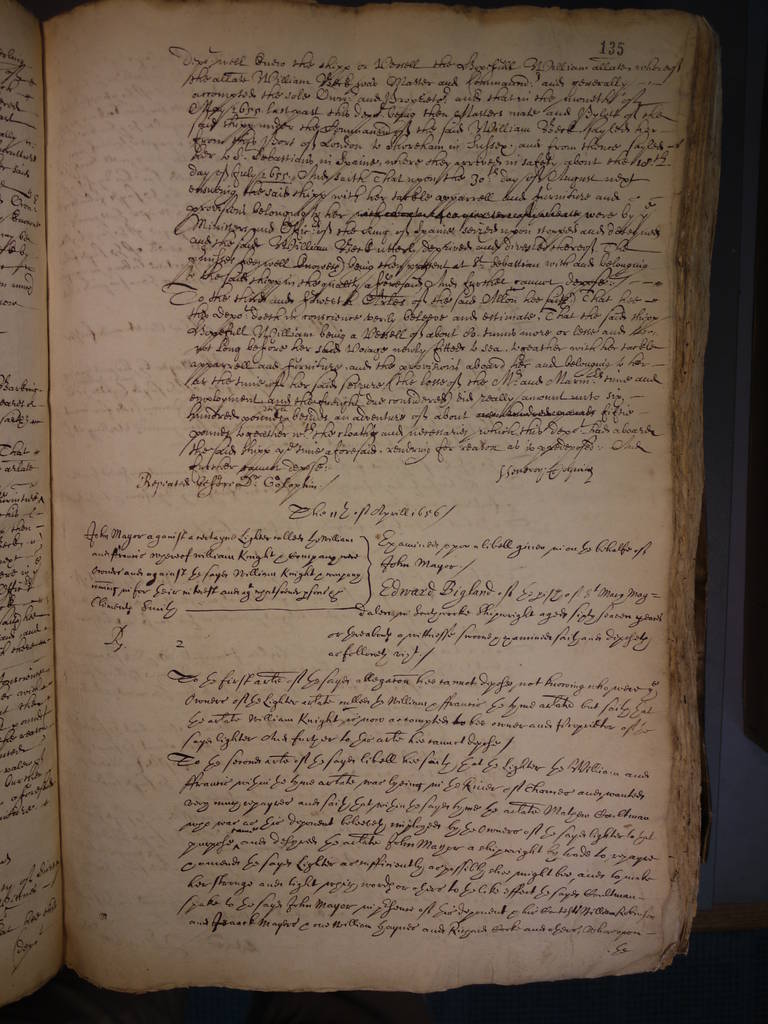 135
depo.t well knew the shipp or Vessell the Hopefull William allate, whereof
the allate William Beck was Master and Command.r and generally
accompted the sole Owner and Propriet.r and that in the moneth of
May 1655 last past this depo.t being then Masters mate and Pylott of the
said shipp under the Command of the said William Beck sayled her
from this Port of London to Shoreham in Sussex, and from thence sayled
her to S.t Sebastians in Spaine, where they arrived in safety about the 18.th
day of July 1655. And saith That upon the 30.th day of August next
ensueing the said shipp with her tackle apparrell and furniture and
provisions belonging to her were by y.e
Ministers and Offic.rs of the King of Spaine seized upon stopped and deteyned
and the said William Beck utterly deprived and divested thereof The
premisses hee well knoweth being then present at S.t Sebastian with and belonging
to the said shipp in the quality aforesaid And further cannot depose.
To the third and fowerth Arles of the said Allon hee saith That hee
this depo.t doeth in conscience verily beleeve and estimate That the said shipp
Hopefull William being a Vessell of about 60 tunns more or lesse and
not long before her said Voiage newly fitted to sea, togeather with her tackle
apparrell and furniture and the provisions aboard her and belonging to her
at the time of her said seizure & the losse of the M.r and Marin.rs time and
employment and the freight due considered did really amount unto six
hundred pounds besides an adventure of about fiftie
pounds togeather w.th the cloathes and necessaries which this depo.t had aboard
the said shipp y.e time aforesaid, rendring for reason as is predeposed. And
further cannot depose.
Repeated before D.r Godolphin
The 11.th of Aprill 1656
John Mayor against a certayne Lighter called the William
and Francis whereof William Knight & Company were
Owners and against the sayd William Knight & company
coming in for their interest
Clements Smith
Examined upon a libell given in on the behalfe of
John Mayor
Edward Bigland of the p.ish of S.t Mary Mag=
dalen in Shipwright aged sixty seaven yeares
or thereabouts a wittnesse sworne & examined saith and deposeth
as followeth viz.t
2
To the first arle of the sayd allegation hee cannot depose, not knowing who were y.e
Owners of the Lighter arlate called the William & Francis the tyme arlated but saith that
the arlate William Knight is now accompted to bee owner and Proprietor of the
sayd lighter And further to this arle hee cannot depose
To the second arle of the sayd libell hee saith that the Lighter the William and
Francis within the tyme arlate was lyeing in the River of Thames and wanted
very much repayres and saith that within the sayd tyme the arlate Mathew Coultman
who was as this deponent beleeveth employed by the Owners of the sayd lighter to that
purpose came and desyred the arlate John Mayor a shipwright by trade to repayre
& amend the sayd Lighter as sufficiently as possibly shee might bee, and to make
her stronge and tight using words or others to the like effect the sayd Coultman
spake to the sayd John Mayor in presence of this deponent & his Contests William
and Isaack Mayor & one William Haynes and Richard and others, Whereupon
the